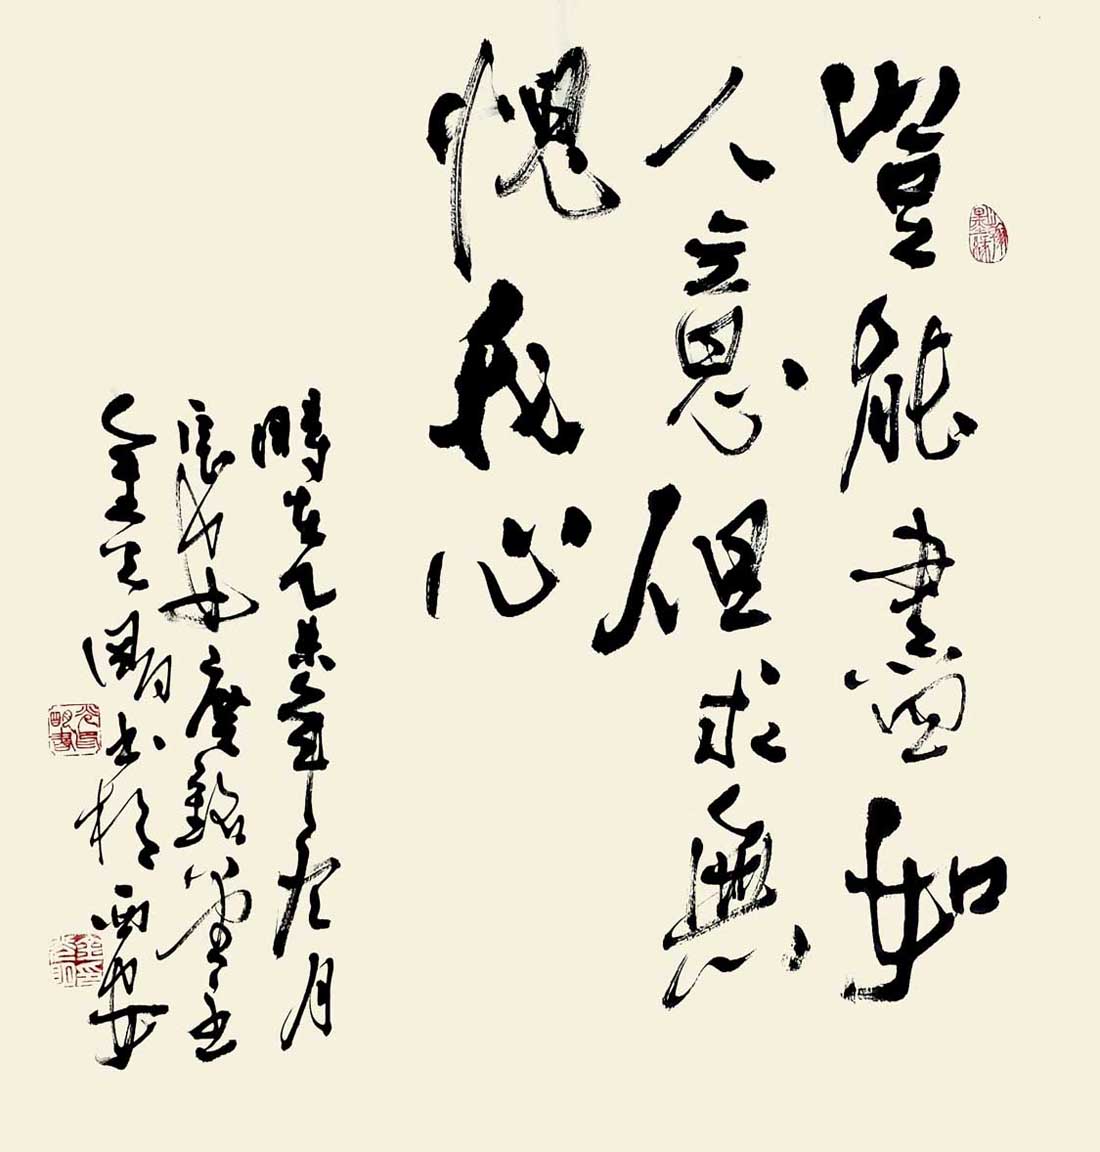 豈能盡如
人意但求無
愧我心
時在乙未年月
慶銘堂主
書於西安